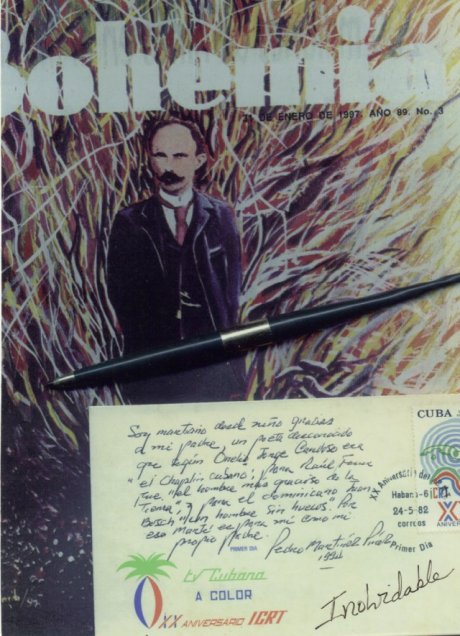 Bohemia
31 DE ENERO DE 1997. AÑO 89. No. 3
Soy martiano desde niño gracias
a mi padre, un poeta descocido
que según Onelio Jorge Cardoso era
"el Chaplin cubano"; para Raúl Ferrer
fue, "el hombre más gracioso de la
Tierra", y para el dominicano Juan
Bosch "un hombre sin huevos". Por
eso Martí es para mí como mi
propio padre.
PRIMER DIA
Pedro Martínez
1994
CUBA
XX Aniversario del ICRT
Habana-6
24-5-82
correos
Primer Día
XX
ANIVERS
tv Cubana
A COLOR
XX ANIVERSARIO ICRT
Inolvidable